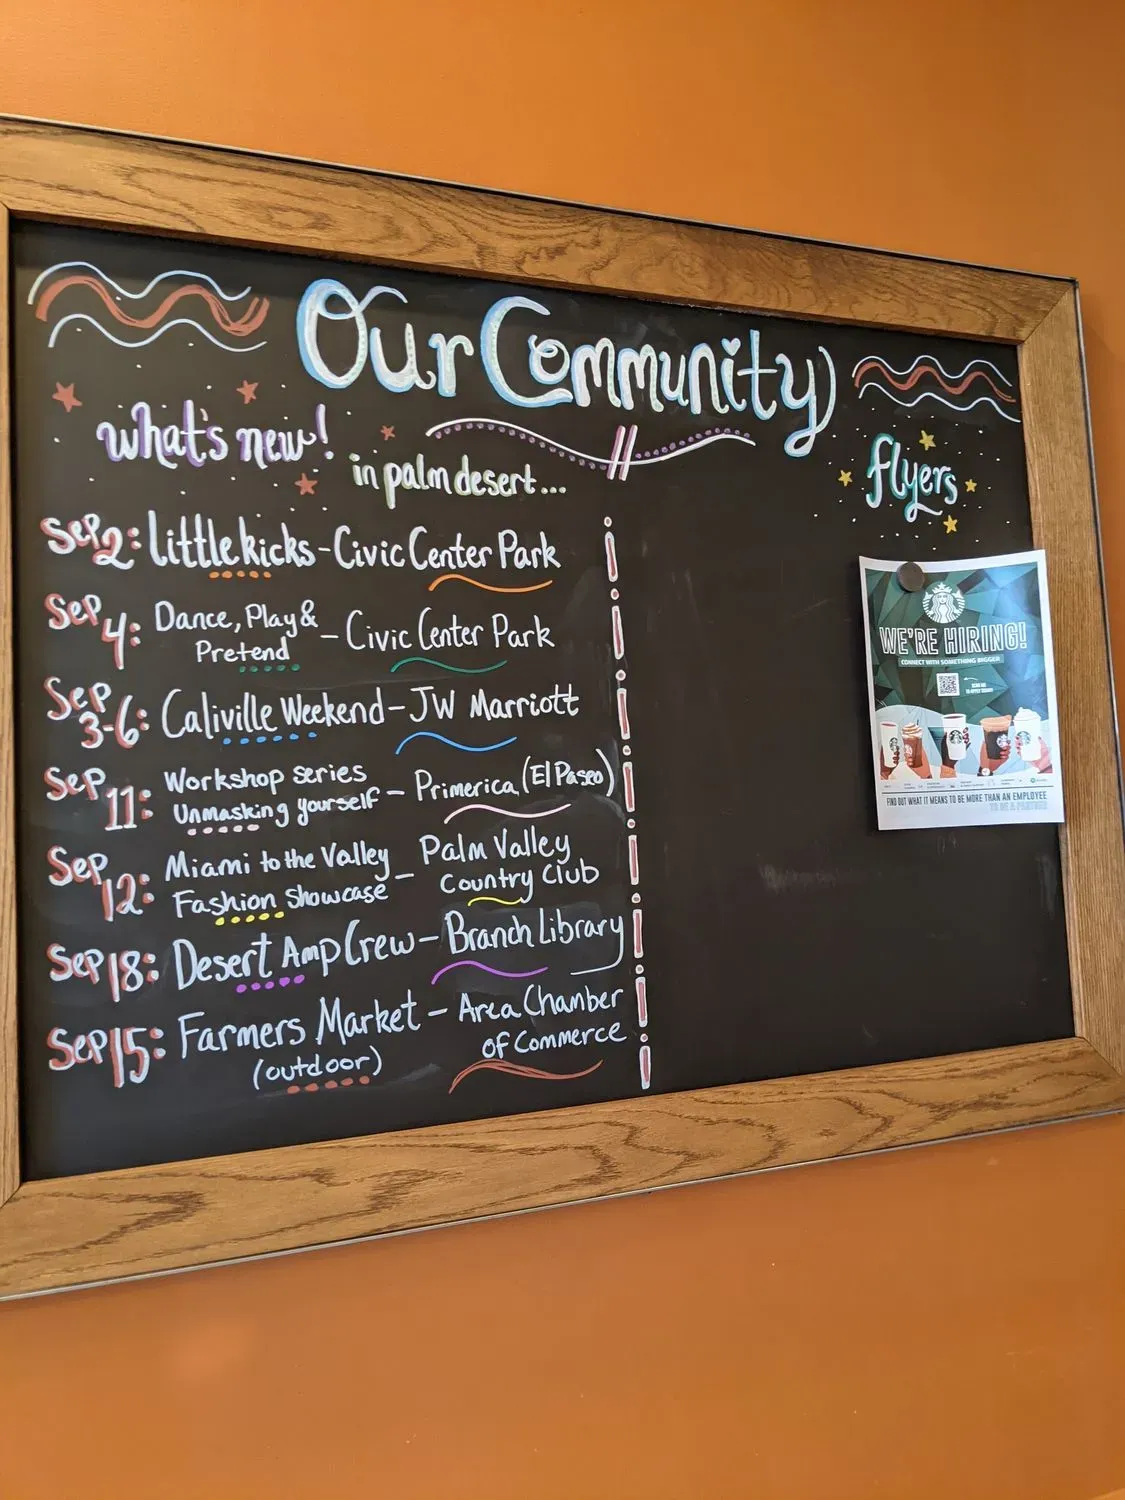 Our Community
what's new!
in palm desert...
flyers
Sep 2: Little kicks - Civic Center Park
Sep 4: Dance, Play & Pretend - Civic Center Park
Sep 3-6: Caliville Weekend - JW Marriott
Sep 11: Workshop series Unmasking yourself - Primerica (El Paseo)
Sep 12: Miami to the Valley Fashion Showcase - Palm Valley Country Club
Sep 18: Desert Amp Crew - Branch Library
Sep 15: Farmers Market (outdoor) - Area Chamber of Commerce
WE'RE HIRING!
CONNECT WITH SOMETHING BIGGER
FIND OUT WHAT IT MEANS TO BE MORE THAN AN EMPLOYEE
TO BE A PARTNER